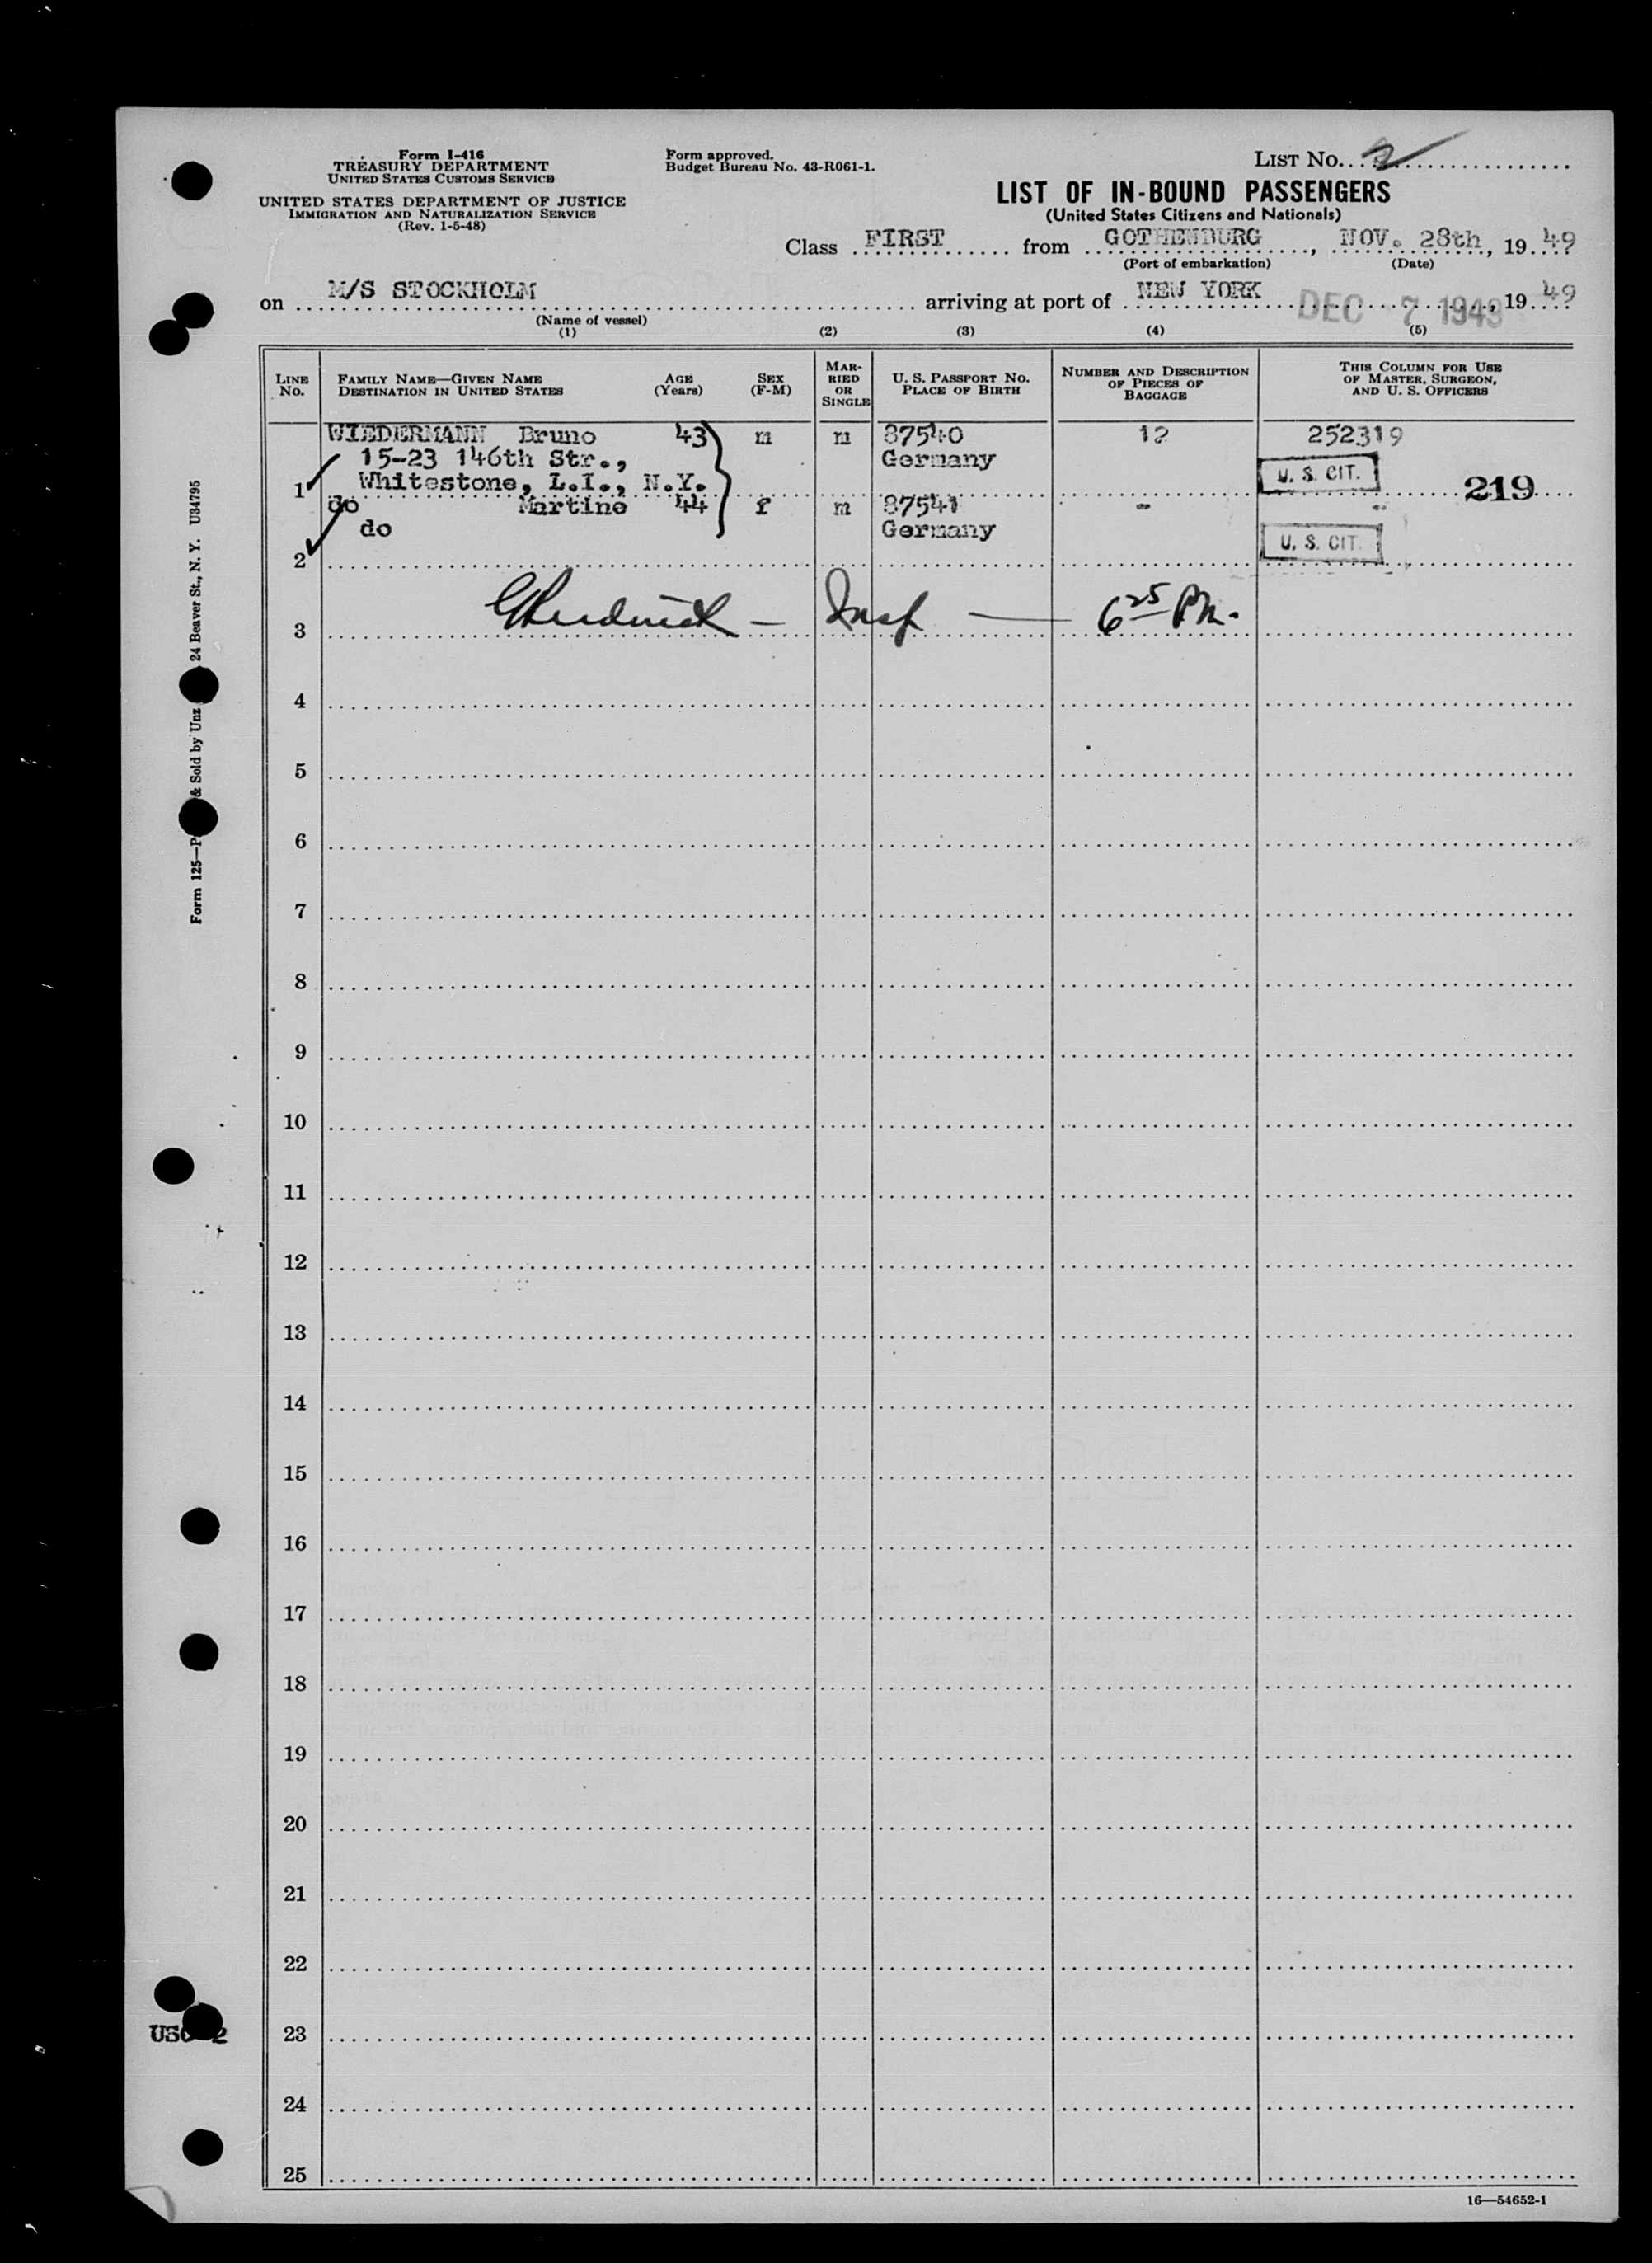 Form I-416
TREASURY DEPARTMENT
UNITED STATES CUSTOMS SERVICE
UNITED STATES DEPARTMENT OF JUSTICE
IMMIGRATION AND NATURALIZATION SERVICE
(Rev. 1-5-48)
Form approved.
Budget Bureau No. 43-R061-1.
LIST NO. 2
LIST OF IN-BOUND PASSENGERS
(United States Citizens and Nationals)
Class FIRST from GOTHENBURG, NOV. 28th, 1949
(Port of embarkation) (Date)
on M/S STOCKHOLM arriving at port of NEW YORK DEC 7 1949, 1949
(Name of vessel)
(1) (2) (3) (4) (5)
LINE NO.
FAMILY NAME—GIVEN NAME
DESTINATION IN UNITED STATES
AGE (Years)
SEX (F-M)
MARRIED OR SINGLE
U. S. PASSPORT NO.
PLACE OF BIRTH
NUMBER AND DESCRIPTION OF PIECES OF BAGGAGE
THIS COLUMN FOR USE OF MASTER, SURGEON, AND U. S. OFFICERS
WIEDERMANN Bruno 43 m m 87540 12 252319
15-23 146th Str., Germany
1 Whitestone, L.I., N.Y. U. S. CIT. 219
do Martine 44 f m 87541 - -
do Germany
2 U. S. CIT.
3 Insp — 6 25 PM.
4
5
6
7
8
9
10
11
12
13
14
15
16
17
18
19
20
21
22
23
24
25
16—54652-1
Form 125—P & Sold by Unz 24 Beaver St., N. Y. U34795